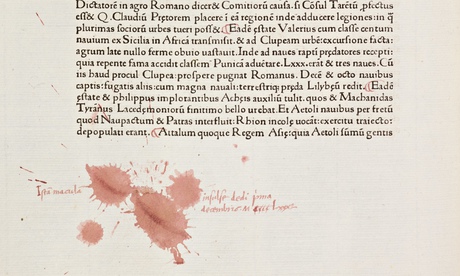 Dictatorē in agro Romano dicerēt & Comitiorū causa. si Cōsul Tarētī, pfectus
ess& Q. Claudiū Pretorem placere i ea regione inde adducere legiones: in q
plurimas sociorū urbes tueri poss&. Eadē estate Valerius cum classe centum
nauium ex Sicilia in Africā transmisit. & ad Clupeam urbē excursione facta:
agrum late nullo ferme obuio uastauit. Inde ad naues rapti predatores recepti:
quia repente fama accidit classem Punicā aduētare. Lxxx. erāt & tres naues. Cū
iis haud procul Clupea: prospere pugnat Romanus. Decē & octo nauibus
captis: fugatis aliis: cum magna nauali: terrestriq; preda Lilybeū rediit. Eadē
estate & philippus implorantibus Acheis auxiliū tulit. quos & Machanidas
Tyrānus Lacedemoniorū finitimo bello urebat. Et Aetoli nauibus per fretū
quod Naupactum & Patras interfluit: Rhion incole uocāt: exercitu traiecto:
depopulati erant. Attalum quoque Regem Asie: quia Aetoli sūmū gentis
Istā macula
insulse dedi prima
decembris